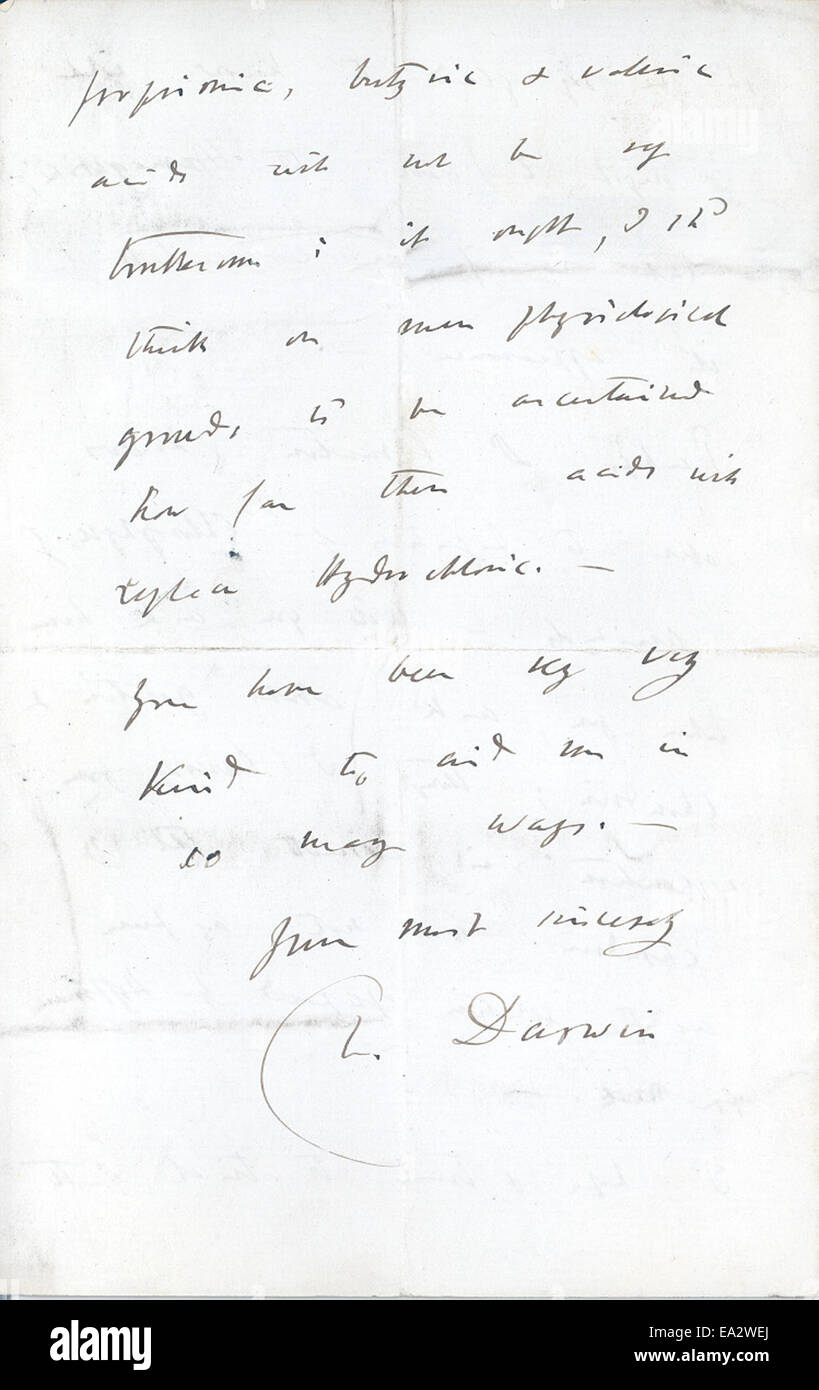 propionic, butyric & valeric
acids will not be very
troublesome; it ought, I shd
think on mere physiological
grounds, to be ascertained
how far these acids will
replace Hydrochloric. —
You have been very very
kind to aid me in
so many ways. —
Yours most sincerely
Ch. Darwin
alamy
Image ID: EA2WEJ
www.alamy.com